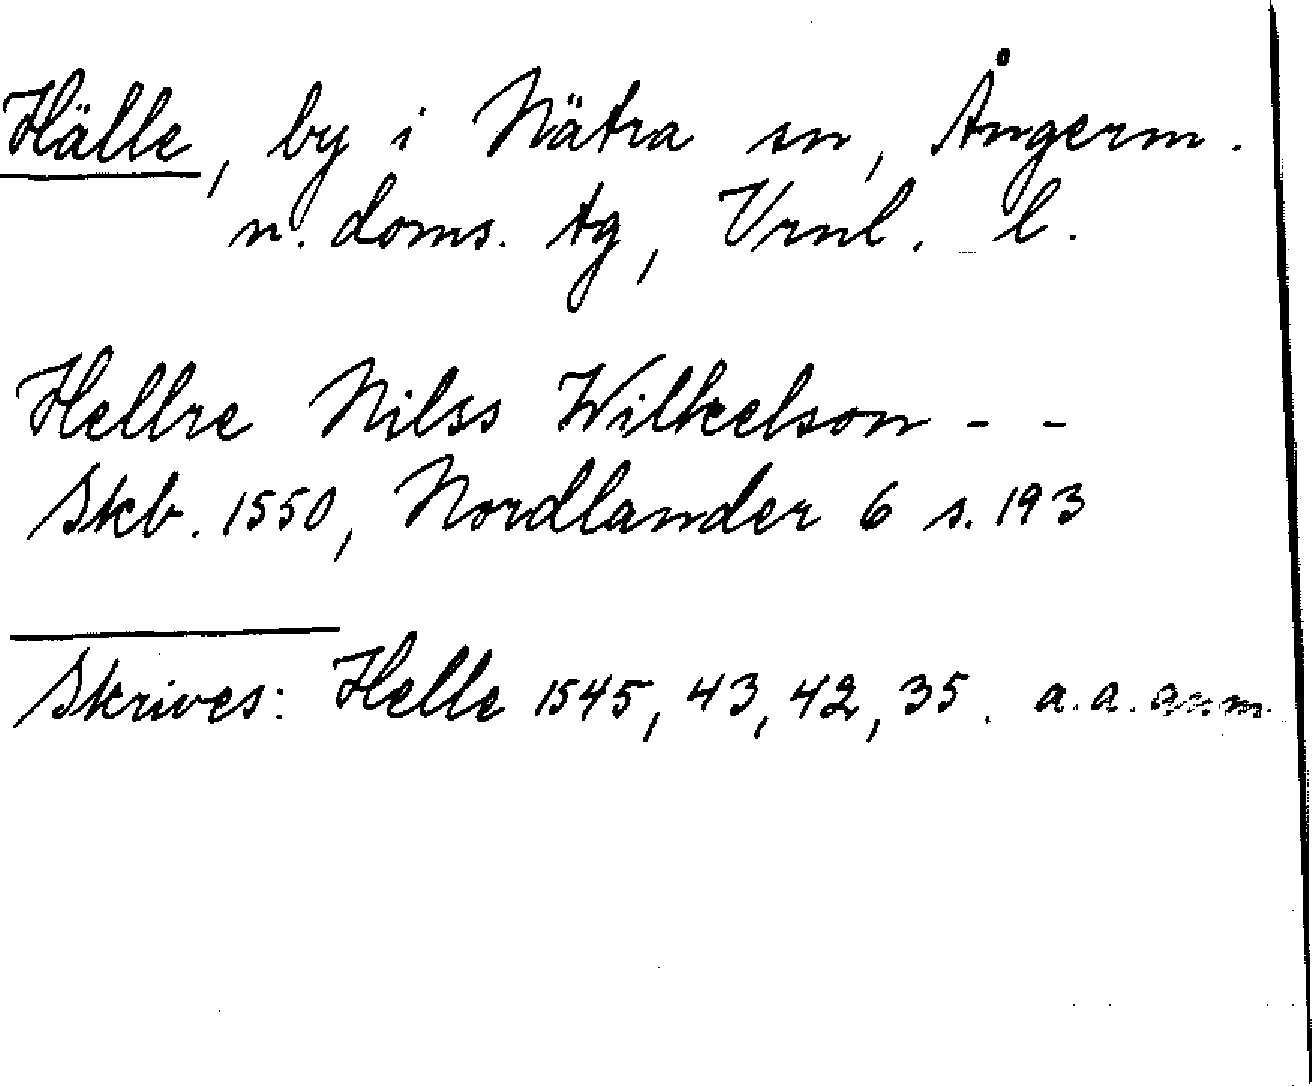 Hälle, by i Nätra sn, Ångerm.
n. doms. tg, Vrnl. l.
Hellre Nilss Wilkelson - -
Skb. 1550, Nordlander 6 s. 193
Skrives: Helle 1545, 43, 42, 35. a.a. anm.